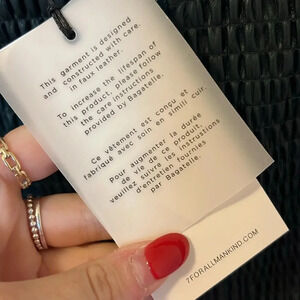 This garment is designed
and constructed with care.
in faux leather.
To increase the lifespan of
this product, please follow
the care instructions
provided by Bagatelle.
Ce vêtement est conçu et
fabriqué avec soin en simili cuir.
Pour augmenter la durée
de vie de ce produit,
veuillez suivre les instructions
d'entretien fournies
par Bagatelle.
7FORALLMANKIND.COM